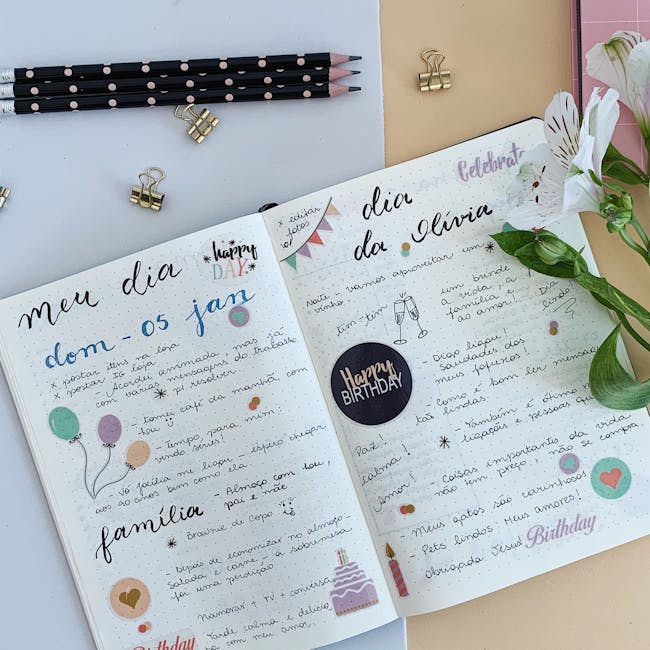 meu dia
happy
DAY
dom - 05 jan
x postar itens na loja
x postar IG loja
- Acordei animada mas já
com várias mensagens do trabalho
p/ resolver
- tomei café da manhã com
- Tempo para mim:
vendo séries!
- Vó Jocília me ligou - espero chegar
aos 90 anos bem como ela
família - Almoço com
pai e mãe
Brownie de Copo
- Depois de economizar no almoço -
salada e carne, a sobremesa
foi uma perdição
Namorar + TV + conversa
Tarde calma e delícia
com meu amor.
Birthday
x editar
fotos
Celebrate
dia
da Olívia
Noite - vamos aproveitar um
vinho.
um brinde
à vida, à
família e
ao amor!
Dia
lindo!
tim-tim
Happy
BIRTHDAY
- Diego ligou!
saudades dos
meus fofuros!
- Como é bom ler mensagens
tão lindas.
- Também é ótimo
ligações e pessoas
Paz!
calma!
Amor!
- Coisas importantes da vida
não tem preço, não se compra.
- Meus gatos são carinhosos
- Pets lindos! Meus amores!
Obrigada Jesus!
Birthday